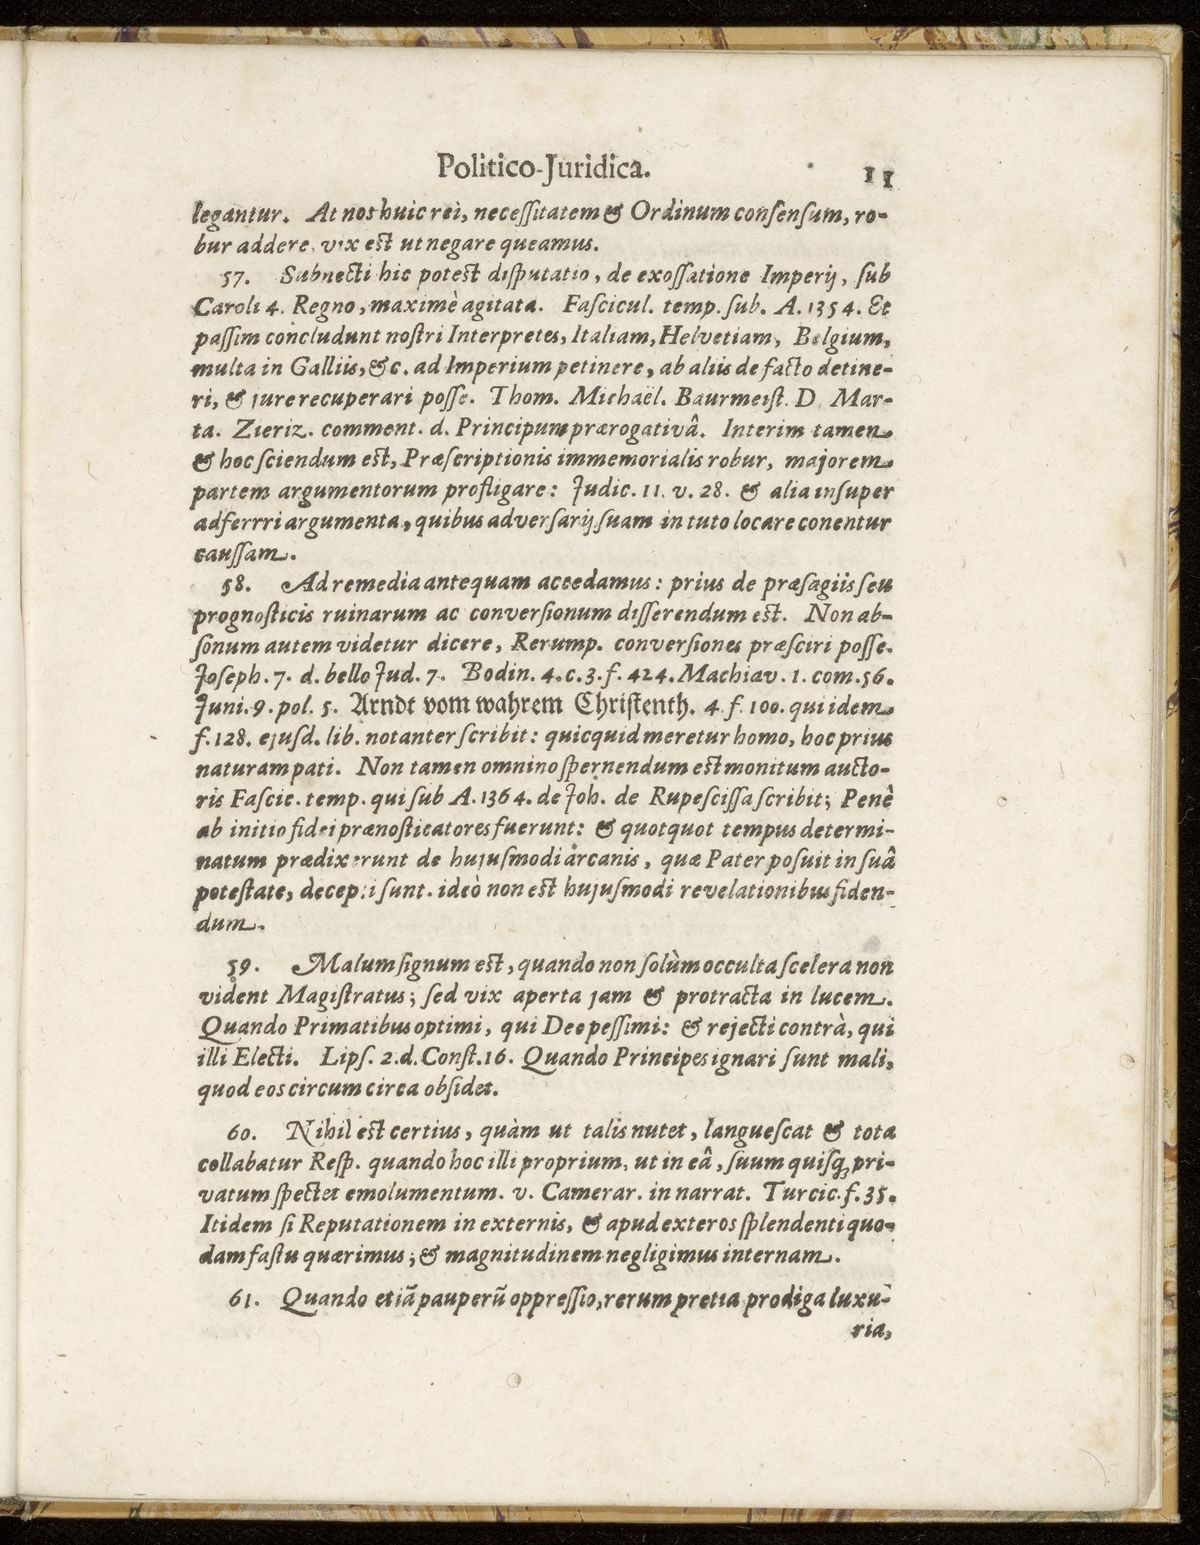 Politico-Juridica. 11
legantur. At nos huic rei, necessitatem & Ordinum consensum, ro-
bur addere, vix est ut negare queamus.
57. Subnecti hic potest disputatio, de exossatione Imperij, sub
Caroli 4. Regno, maximè agitata. Fascicul. temp. sub. A. 1354. Et
passim concludunt nostri Interpretes, Italiam, Helvetiam, Belgium,
multa in Galliis, &c. ad Imperium petinere, ab aliis de facto detine-
ri, & jure recuperari posse. Thom. Michaël. Baurmeist. D. Mar-
ta. Zieriz. comment. d. Principum prærogativâ. Interim tamen
& hoc sciendum est, Præscriptionis immemorialis robur, majorem
partem argumentorum profligare: Judic. 11. v. 28. & alia insuper
adferrri argumenta, quibus adversarij suam in tuto locare conentur
caussam.
58. Ad remedia antequam accedamus: prius de præsagiis seu
prognosticis ruinarum ac conversionum disserendum est. Non ab-
sonum autem videtur dicere, Rerump. conversiones præsciri posse.
Joseph. 7. d. bello Jud. 7. Bodin. 4. c. 3. f. 424. Machiav. 1. com. 56.
Juni. 9. pol. 5. Arndt vom wahrem Christenth. 4. f. 100. qui idem
f. 128. ejusd. lib. notanter scribit: quicquid meretur homo, hoc prius
naturam pati. Non tamen omnino spernendum est monitum aucto-
ris Fascic. temp. qui sub A. 1364. de Joh. de Rupescissa scribit; Penè
ab initio fidei prænosticatores fuerunt: & quotquot tempus determi-
natum prædixerunt de hujusmodi arcanis, quæ Pater posuit in suâ
potestate, decepti sunt. ideò non est hujusmodi revelationibus fiden-
dum.
59. Malum signum est, quando non solùm occulta scelera non
vident Magistratus; sed vix aperta jam & protracta in lucem.
Quando Primatibus optimi, qui Deo pessimi: & rejecti contrà, qui
illi Electi. Lips. 2. d. Const. 16. Quando Principes ignari sunt mali,
quod eos circum circa obsidet.
60. Nihil est certius, quàm ut talis nutet, languescat & tota
collabatur Resp. quando hoc illi proprium, ut in eâ, suum quisq; pri-
vatum spectet emolumentum. v. Camerar. in narrat. Turcic. f. 35.
Itidem si Reputationem in externis, & apud exteros splendenti quo-
dam fastu quærimus; & magnitudinem negligimus internam.
61. Quando etiã pauperũ oppressio, rerum pretia prodiga luxu-
ria,